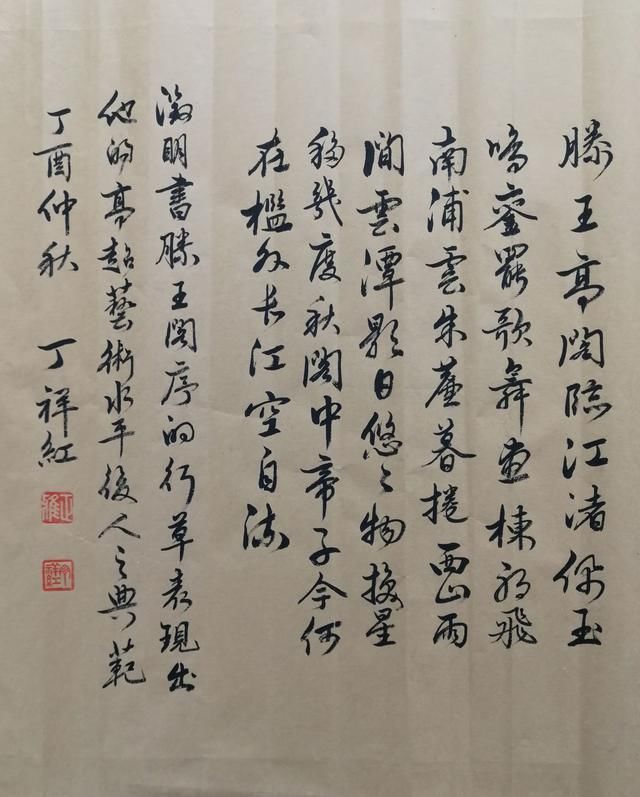 滕王高閣臨江渚佩玉
鳴鑾罷歌舞畫棟朝飛
南浦雲朱簾暮捲西山雨
閒雲潭影日悠〻物換星
移幾度秋閣中帝子今何
在檻外長江空自流
徵明書滕王閣序的行草表現出
他的高超藝術水平後人之典範
丁酉仲秋 丁祥紅